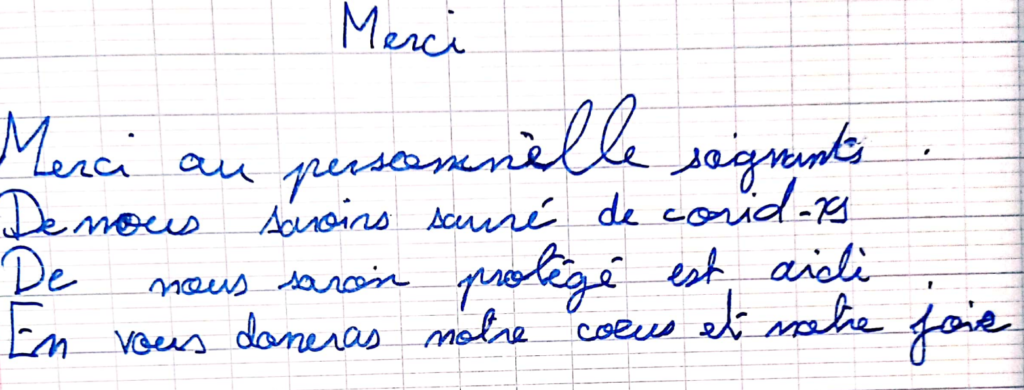 Merci
Merci au personnèlle soignants.
De nous savoirs sauvé de covid-19
De nous savoir protégé est aidé
En vous doneras notre coeus et notre joie